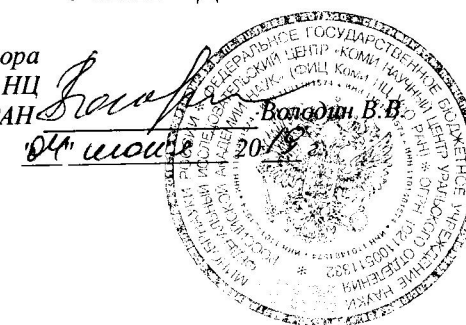 ора
НЦ
РАН
Володин В.В.
"04" июня 2019 г.
МИНОБРНАУКИ РОССИИ * ФЕДЕРАЛЬНОЕ ГОСУДАРСТВЕННОЕ БЮДЖЕТНОЕ УЧРЕЖДЕНИЕ НАУКИ
ФЕДЕРАЛЬНЫЙ ИССЛЕДОВАТЕЛЬСКИЙ ЦЕНТР «КОМИ НАУЧНЫЙ ЦЕНТР УРАЛЬСКОГО ОТДЕЛЕНИЯ
РОССИЙСКОЙ АКАДЕМИИ НАУК» (ФИЦ Коми НЦ УрО РАН) * ОГРН 1021100511332 *